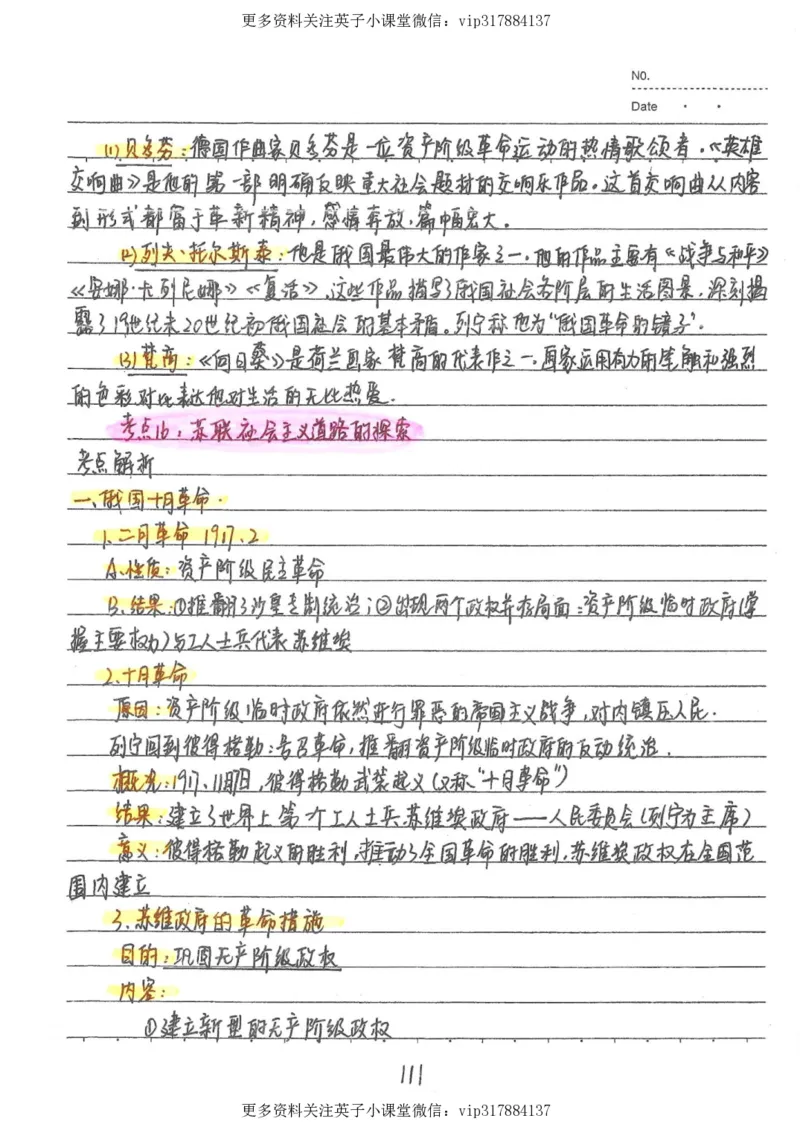 更多资料关注英子小课堂微信：vip317884137
No.
Date
(1)贝多芬：德国作曲家贝多芬是一位资产阶级革命运动的热情歌颂者。《英雄
交响曲》是他的第一部明确反映重大社会题材的交响乐作品。这首交响曲从内容
到形式都富于革新精神，感情奔放，篇幅宏大。
(2)列夫·托尔斯泰：他是俄国最伟大的作家之一，他的作品主要有《战争与和平》
《安娜·卡列尼娜》《复活》，这些作品描写了俄国社会各阶层的生活图景，深刻揭
露了19世纪末20世纪初俄国社会的基本矛盾。列宁称他为“俄国革命的镜子”.
(3)梵高：《向日葵》是荷兰画家梵高的代表作之一，画家运用有力的笔触和强烈
的色彩对比表达他对生活的无比热爱.
考点16：苏联社会主义道路的探索
考点解析
一、俄国十月革命.
1.二月革命 1917、2
A.性质：资产阶级民主革命
B.结果：①推翻了沙皇专制统治；②出现两个政权并存局面：资产阶级临时政府(掌
握主要权力)与工人士兵代表苏维埃
2.十月革命
原因：资产阶级临时政府依然进行罪恶的帝国主义战争，对内镇压人民.
列宁回到彼得格勒：号召革命，推翻资产阶级临时政府的反动统治.
概况：1917、11月7日，彼得格勒武装起义(又称“十月革命”)
结果：建立了世界上第一个工人士兵苏维埃政府——人民委员会(列宁为主席)
意义：彼得格勒起义的胜利，推动了全国革命的胜利，苏维埃政权在全国范
围内建立
3.苏维政府的革命措施
目的：巩固无产阶级政权
内容：
①建立新型的无产阶级政权
111
更多资料关注英子小课堂微信：vip317884137